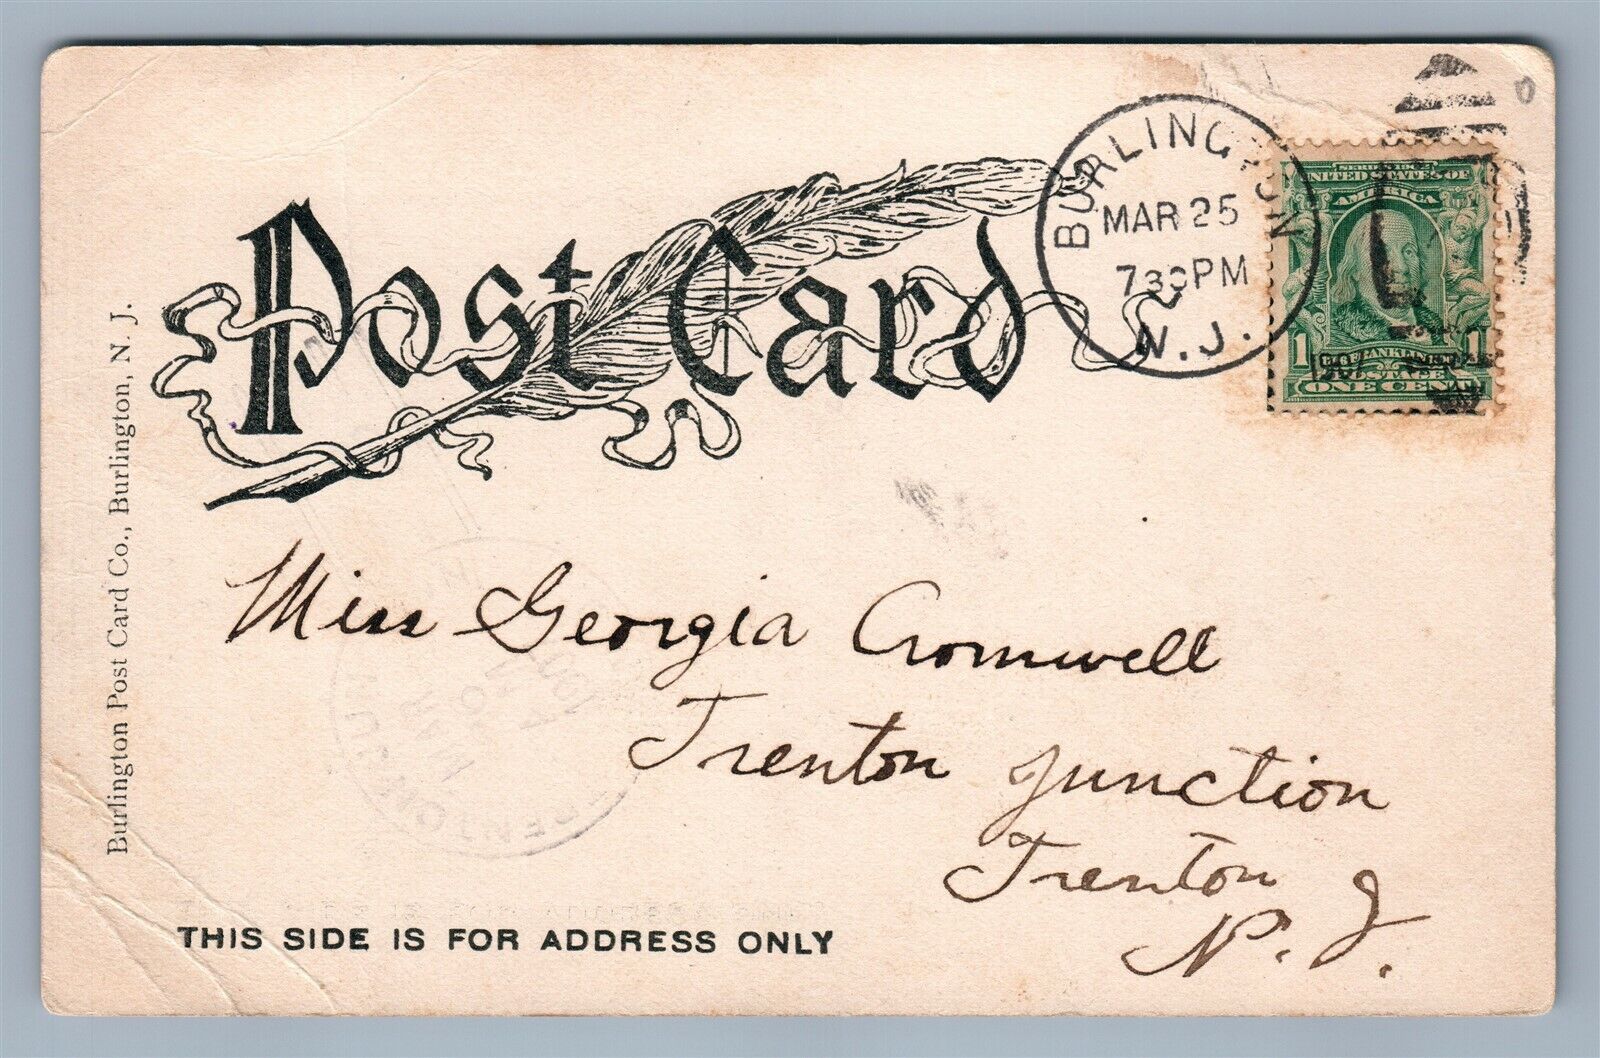 Post Card
BURLINGTON
MAR 25
730PM
N.J.
UNITED STATES OF
AMERICA
1 1
POSTAGE
ONE CENT
Burlington Post Card Co., Burlington, N. J.
Miss Georgia Cromwell
Trenton Junction
Trenton
N. J.
THIS SIDE IS FOR ADDRESS ONLY